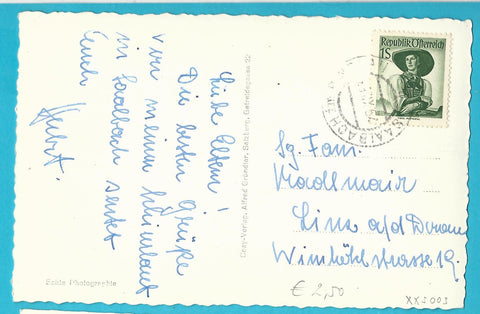 Liebe Eltern!
Die besten Grüße
von meinem Skiurlaub
in Saalbach sendet
Euch
Herbert.
Cosy-Verlag, Alfred Gründler, Salzburg, Getreidegasse 22
Echte Photographie
Republik Österreich
1S
SAALBACH
Sg. Fam.
Kadlmair
Linz a/d Donau
Wimhölzlstrasse 19.
€ 2,50
XXS003